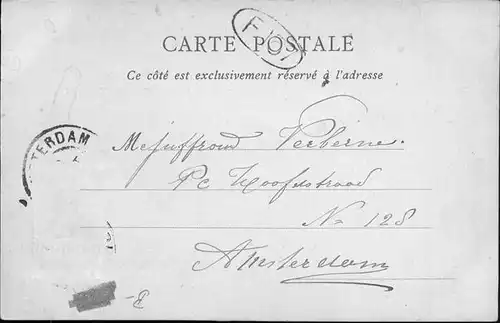 CARTE POSTALE
Ce côté est exclusivement réservé à l'adresse
TERDAM
Mejuffrouw Verherne
Pc Hoofdstraat
No 128
Amsterdam